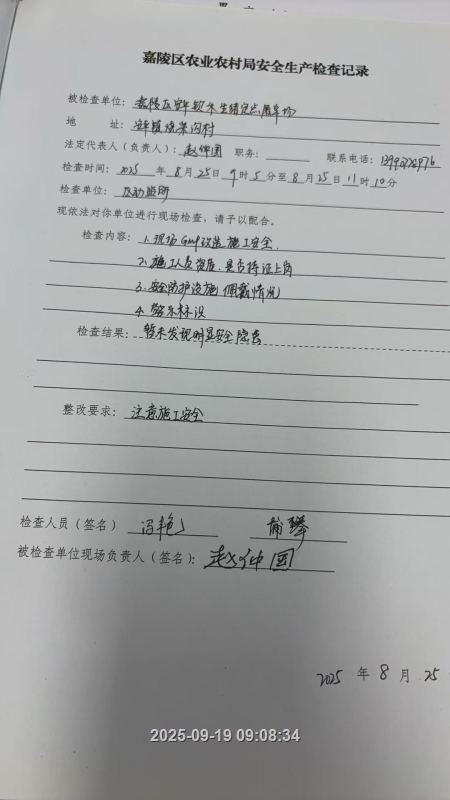 嘉陵区农业农村局安全生产检查记录
被检查单位：嘉陵区 生猪定点屠宰场
地 址：
法定代表人（负责人）：赵仲国 职务： 联系电话：
检查时间：2025 年 8 月 25 日 9 时 5 分至 8 月 25 日 11 时 10 分
检查单位：
现依法对你单位进行现场检查，请予以配合。
检查内容：1.现场GMP改造施工安全.
2.施工人员资质，是否持证上岗
3.安全防护设施佩戴情况
4.警示标识
检查结果：暂未发现明显安全隐患
整改要求：注意施工安全
检查人员（签名） 冯艳
被检查单位现场负责人（签名）：赵仲国
2025 年 8 月 25
2025-09-19 09:08:34